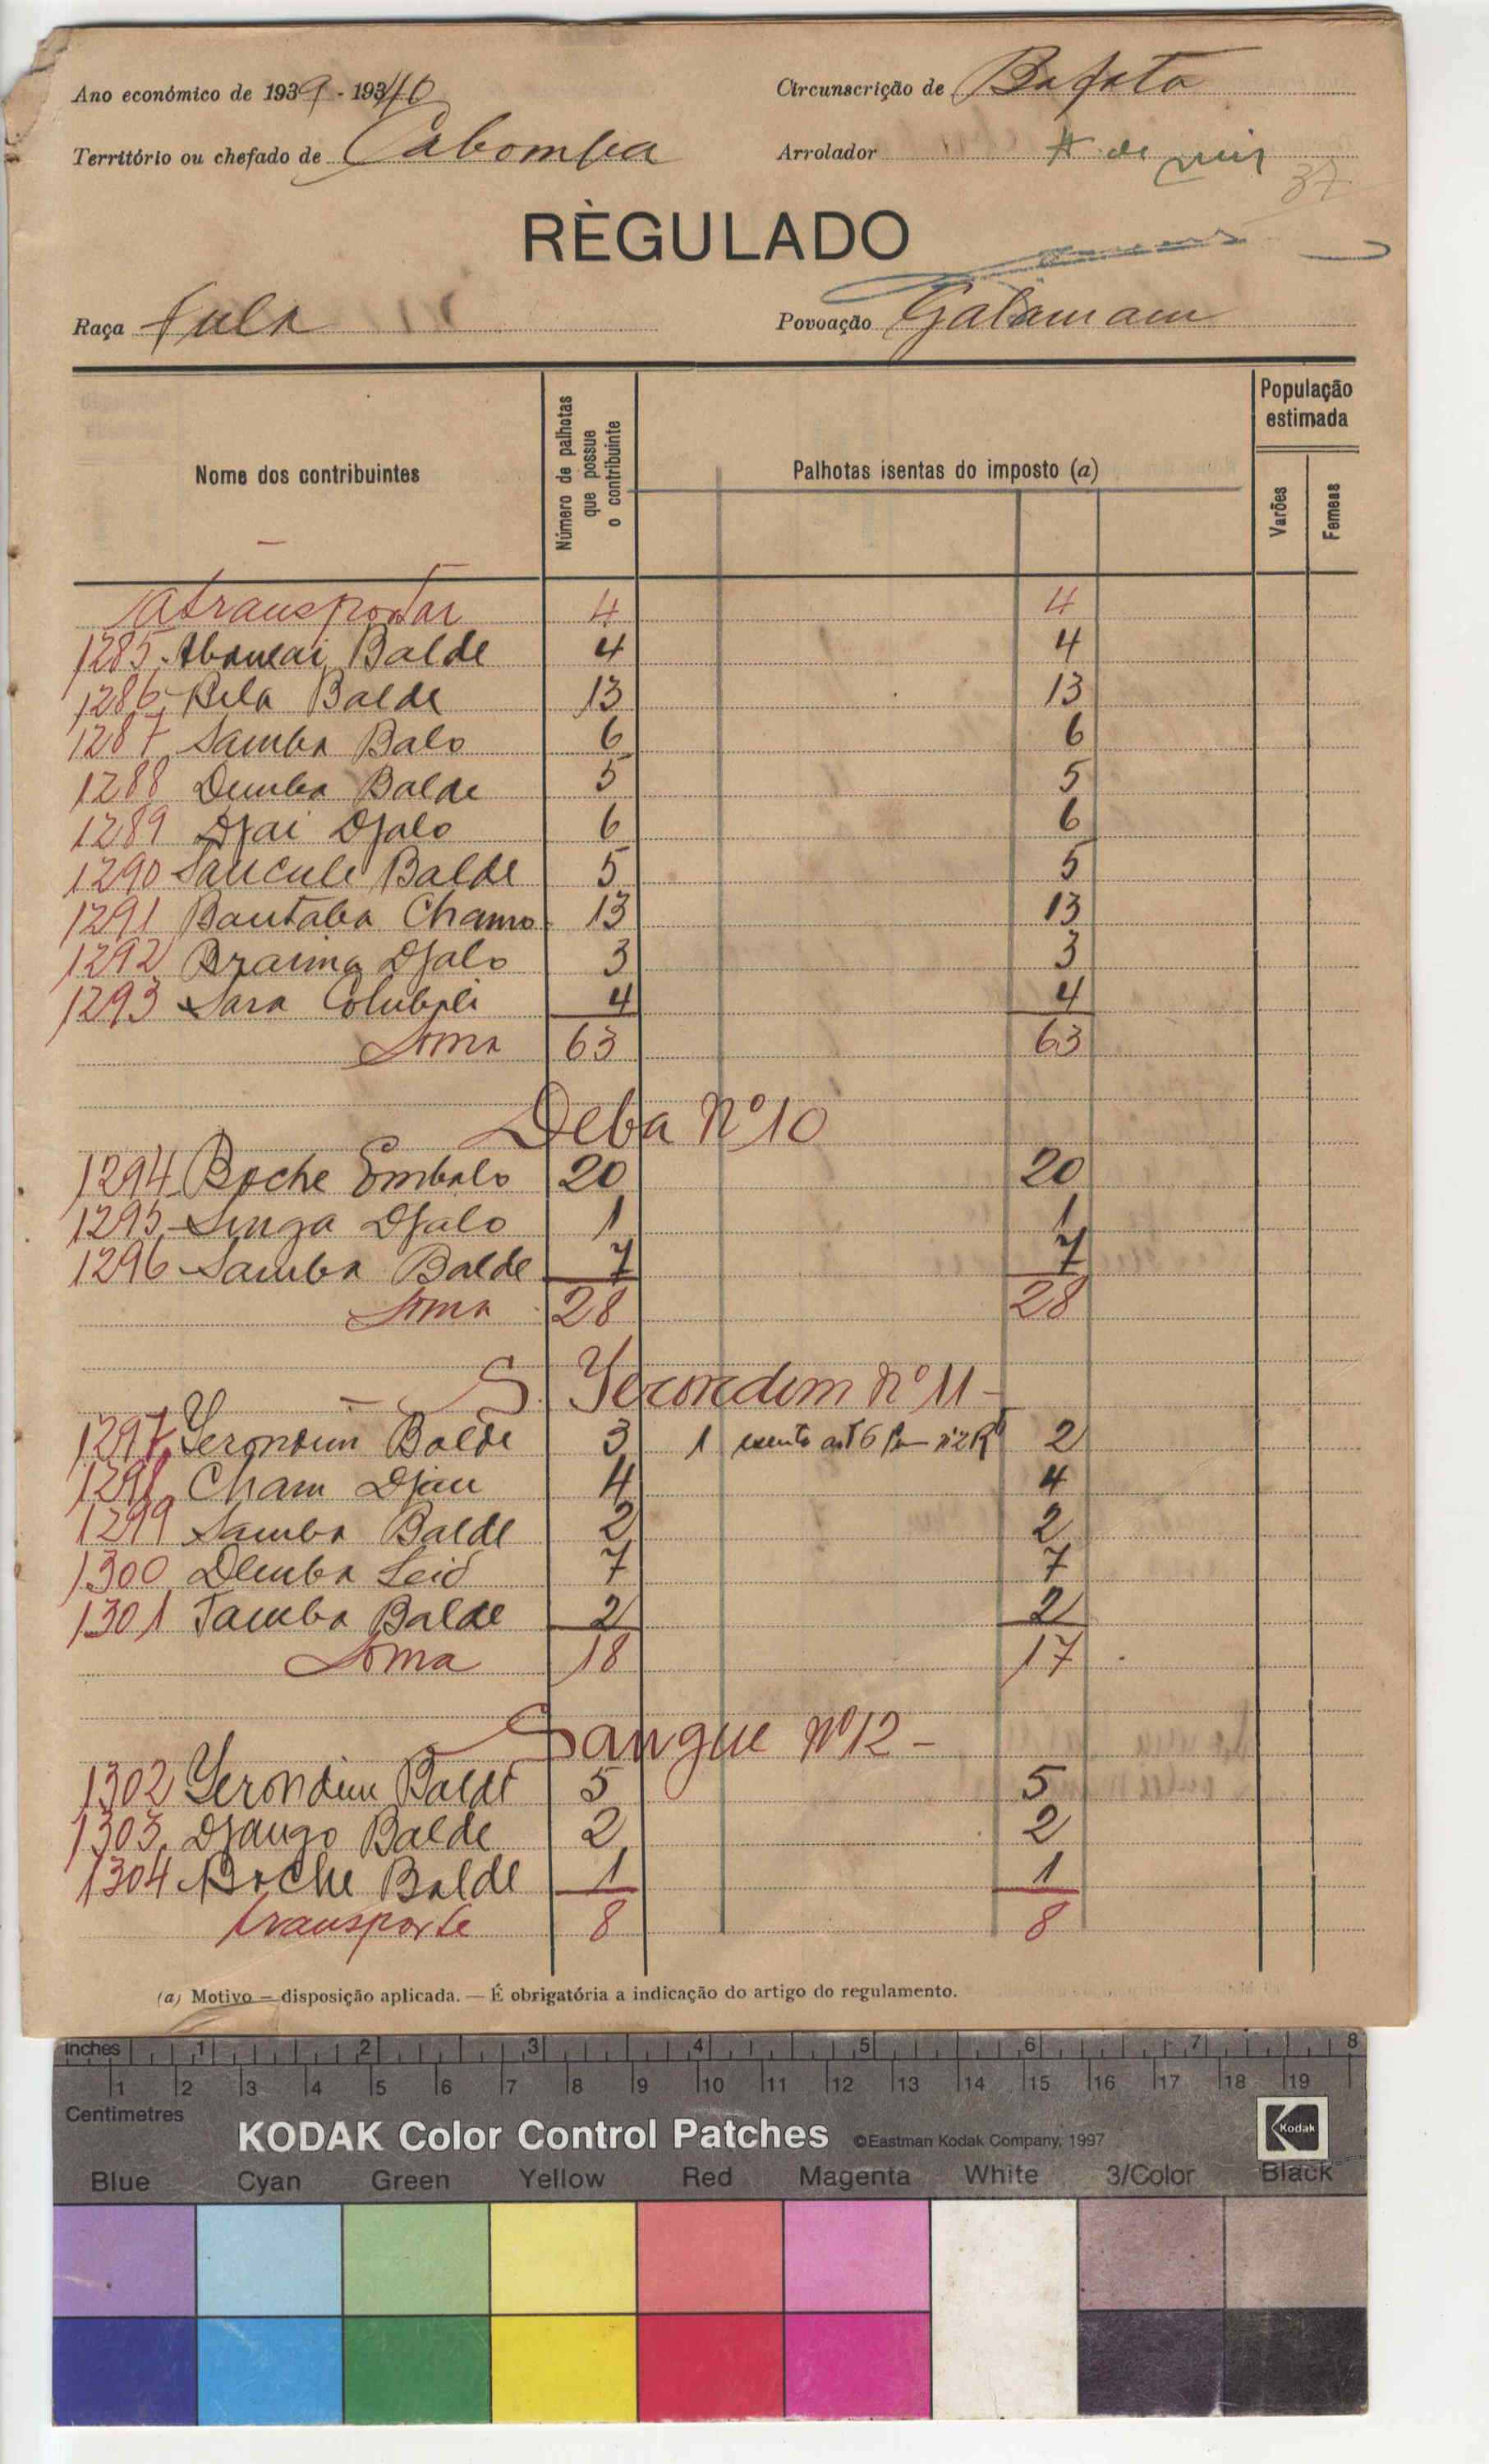 Ano económico de 1939 - 1940
Circunscrição de Bafata
Território ou chefado de Cabomba
Arrolador
37
RÈGULADO
Raça Fula
Povoação Galamam
Nome dos contribuintes
Número de palhotas que possue o contribuinte
Palhotas isentas do imposto (a)
População estimada
Varões
Femeas
Atransportar 4 4
1285 Balde 4 4
1286 Bela Balde 13 13
1287 Samba Balo 6 6
1288 Demba Balde 5 5
1289 Djai Djalo 6 6
1290 Saucule Balde 5 5
1291 Bautaba Chamo 13 13
1292 Braima Djalo 3 3
1293 Sara Colubali 4 4
Soma 63 63
Deba Nº 10
1294 Boche Embalo 20 20
1295 Singa Djalo 1 1
1296 Samba Balde 7 7
Soma 28 28
S. Yerorendim nº 11 -
1297 Yerondim Balde 3 1 isento 2
1298 Cham Djau 4 4
1299 Samba Balde 2 2
1300 Demba Seid 7 7
1301 Tamba Balde 2 2
Soma 18 17
Sangue nº 12 -
1302 Yerondim Balde 5 5
1303 Django Balde 2 2
1304 Boche Balde 1 1
transporte 8 8
(a) Motivo — disposição aplicada. — É obrigatória a indicação do artigo do regulamento.
Inches 1 2 3 4 5 6 7 8
1 2 3 4 5 6 7 8 9 10 11 12 13 14 15 16 17 18 19
Centimetres
KODAK Color Control Patches ©Eastman Kodak Company, 1997
Kodak
Blue Cyan Green Yellow Red Magenta White 3/Color Black